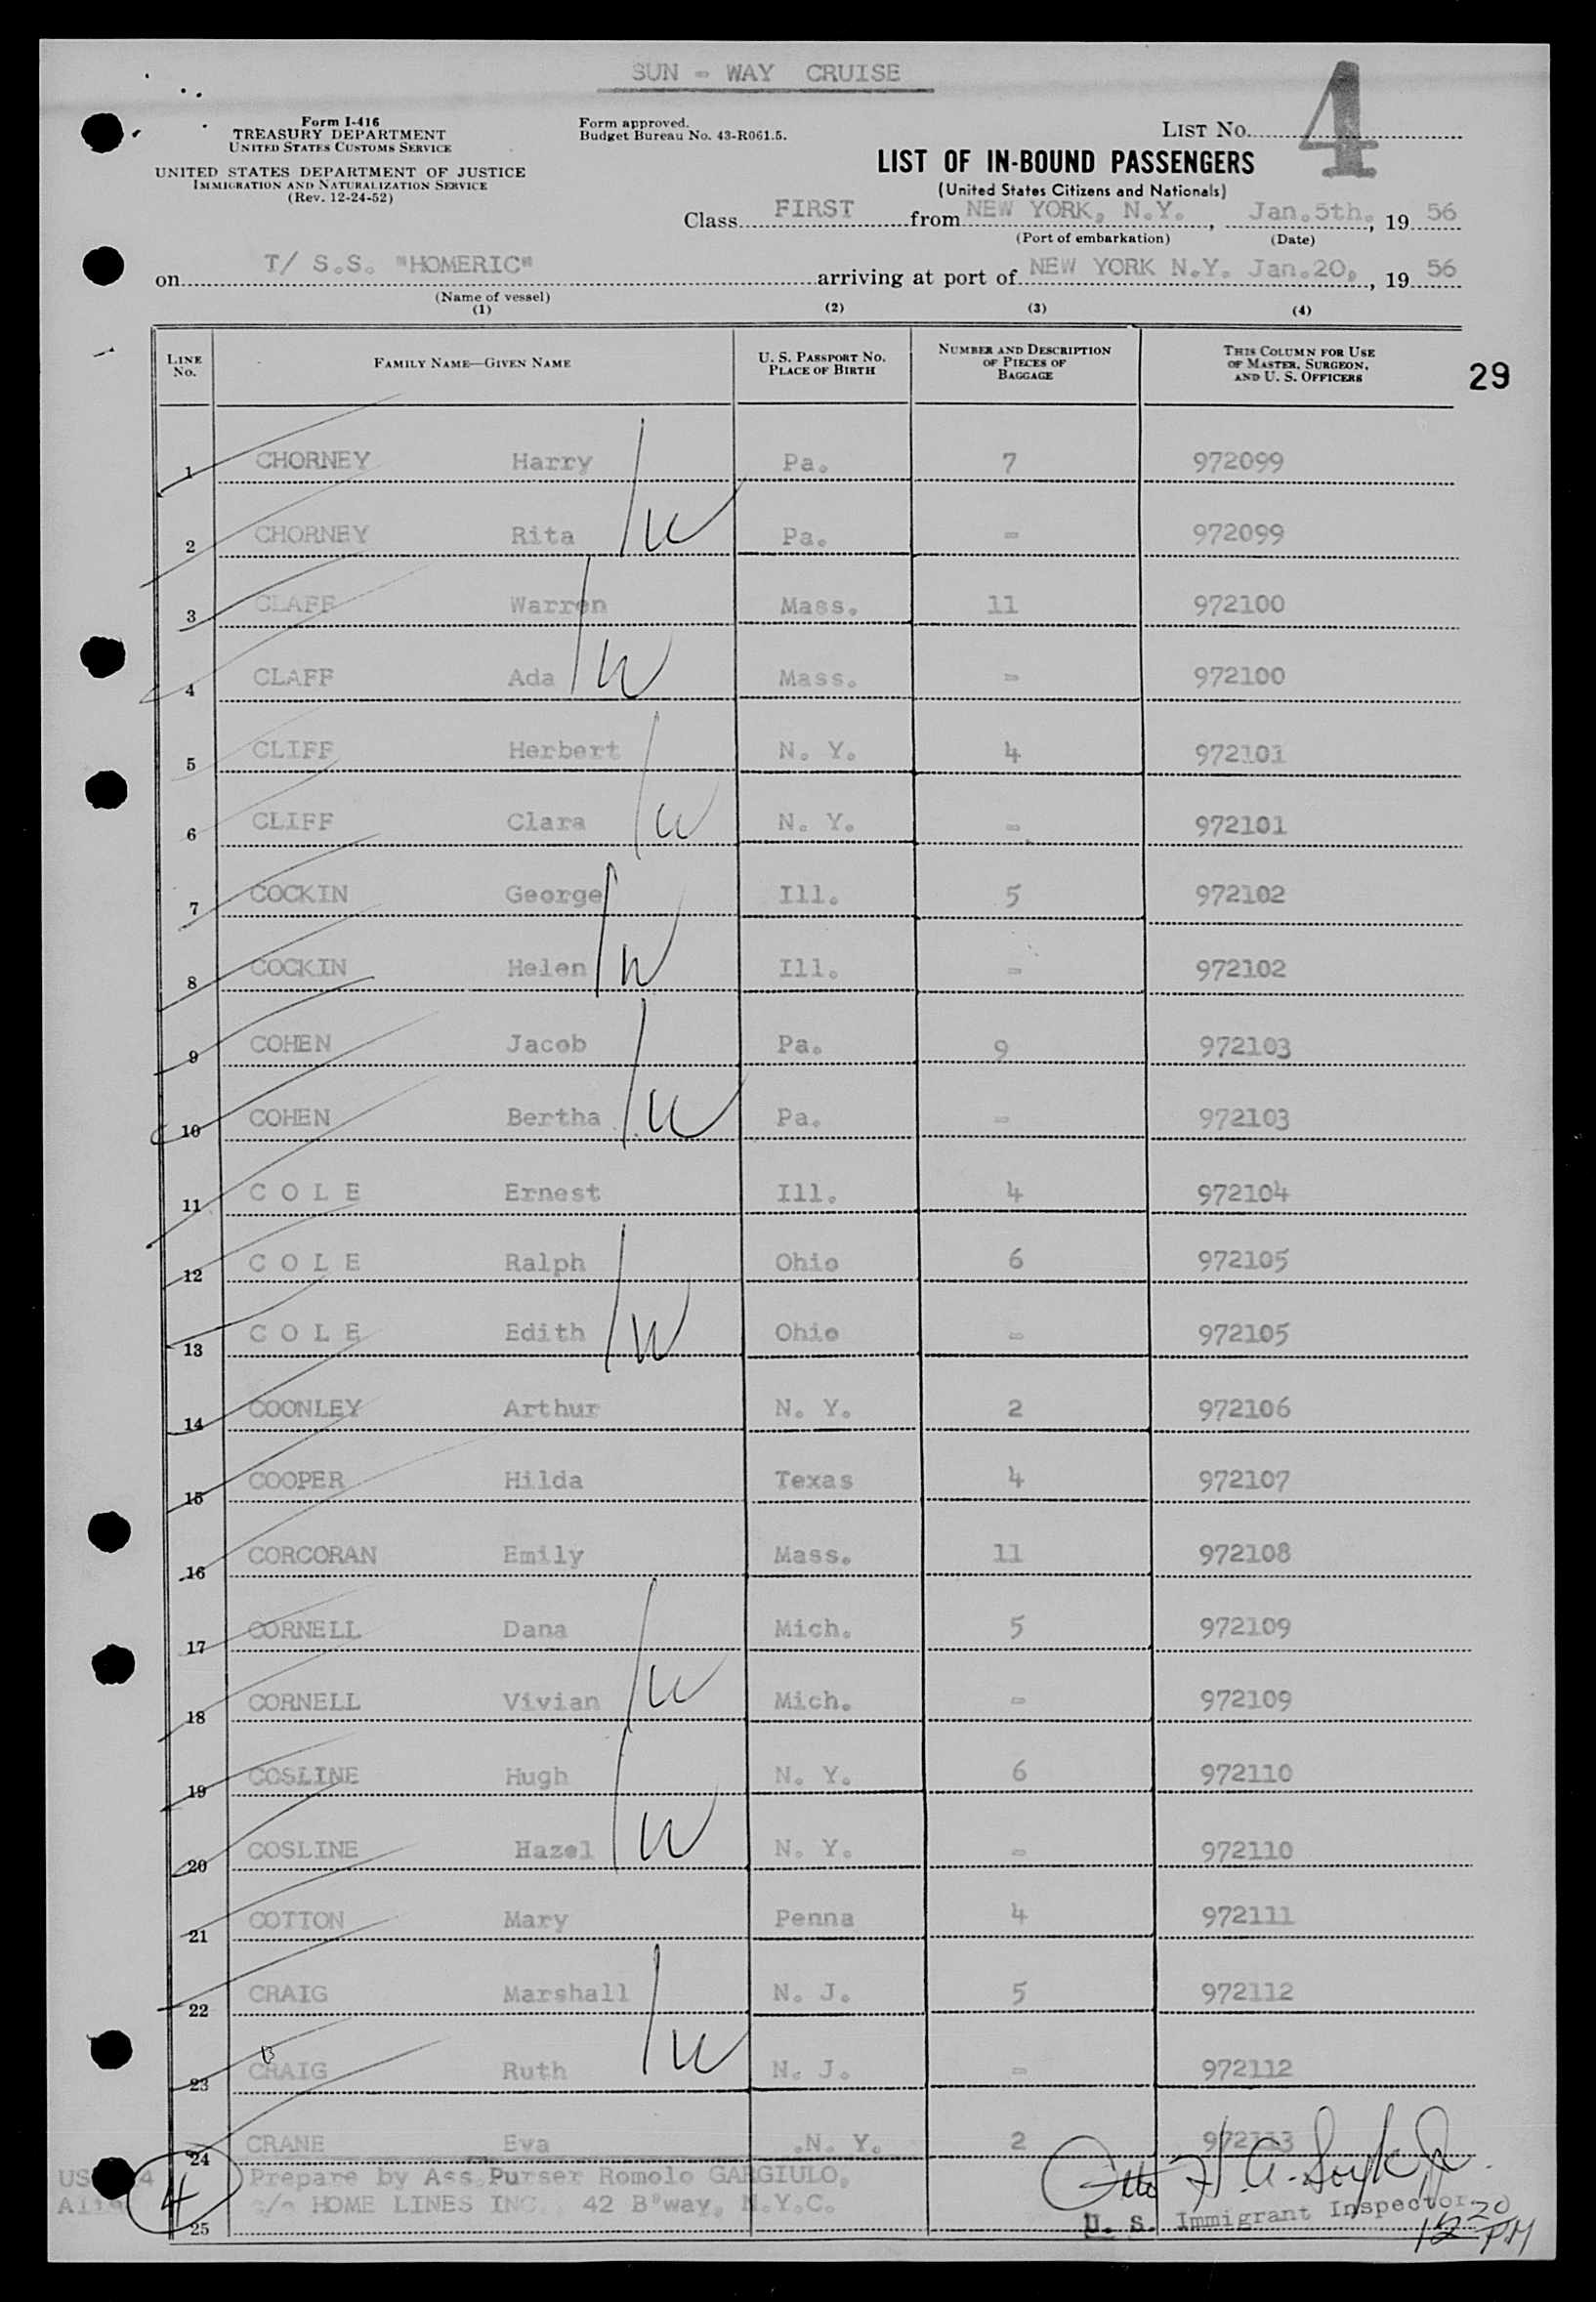 SUN - WAY CRUISE
Form I-416
TREASURY DEPARTMENT
UNITED STATES CUSTOMS SERVICE
UNITED STATES DEPARTMENT OF JUSTICE
IMMIGRATION AND NATURALIZATION SERVICE
(Rev. 12-24-52)
Form approved.
Budget Bureau No. 43-R061.5.
LIST No. 4
LIST OF IN-BOUND PASSENGERS
(United States Citizens and Nationals)
Class FIRST from NEW YORK, N.Y., Jan.5th., 19 56
(Port of embarkation) (Date)
on T/ S.S. "HOMERIC" arriving at port of NEW YORK N.Y. Jan.20, , 19 56
(Name of vessel)
(1) (2) (3) (4)
LINE No. FAMILY NAME—GIVEN NAME U. S. PASSPORT NO. PLACE OF BIRTH NUMBER AND DESCRIPTION OF PIECES OF BAGGAGE THIS COLUMN FOR USE OF MASTER, SURGEON, AND U. S. OFFICERS
29
1 CHORNEY Harry Pa. 7 972099
2 CHORNEY Rita W Pa. - 972099
3 CLAFF Warren Mass. 11 972100
4 CLAFF Ada W Mass. - 972100
5 CLIFF Herbert N. Y. 4 972101
6 CLIFF Clara W N. Y. - 972101
7 COCKIN George Ill. 5 972102
8 COCKIN Helen W Ill. - 972102
9 COHEN Jacob Pa. 9 972103
10 COHEN Bertha W Pa. - 972103
11 C O L E Ernest Ill. 4 972104
12 C O L E Ralph Ohio 6 972105
13 C O L E Edith W Ohio - 972105
14 COONLEY Arthur N. Y. 2 972106
15 COOPER Hilda Texas 4 972107
16 CORCORAN Emily Mass. 11 972108
17 CORNELL Dana Mich. 5 972109
18 CORNELL Vivian W Mich. - 972109
19 COSLINE Hugh N. Y. 6 972110
20 COSLINE Hazel W N. Y. - 972110
21 COTTON Mary Penna 4 972111
22 CRAIG Marshall N. J. 5 972112
23 CRAIG Ruth W N. J. - 972112
24 CRANE Eva .N. Y. 2 972113
Prepare by Ass.Purser Romolo GARGIULO,
4 c/o HOME LINES INC., 42 B'way, N.Y.C.
25
U. S. Immigrant Inspector.
12 20 PM